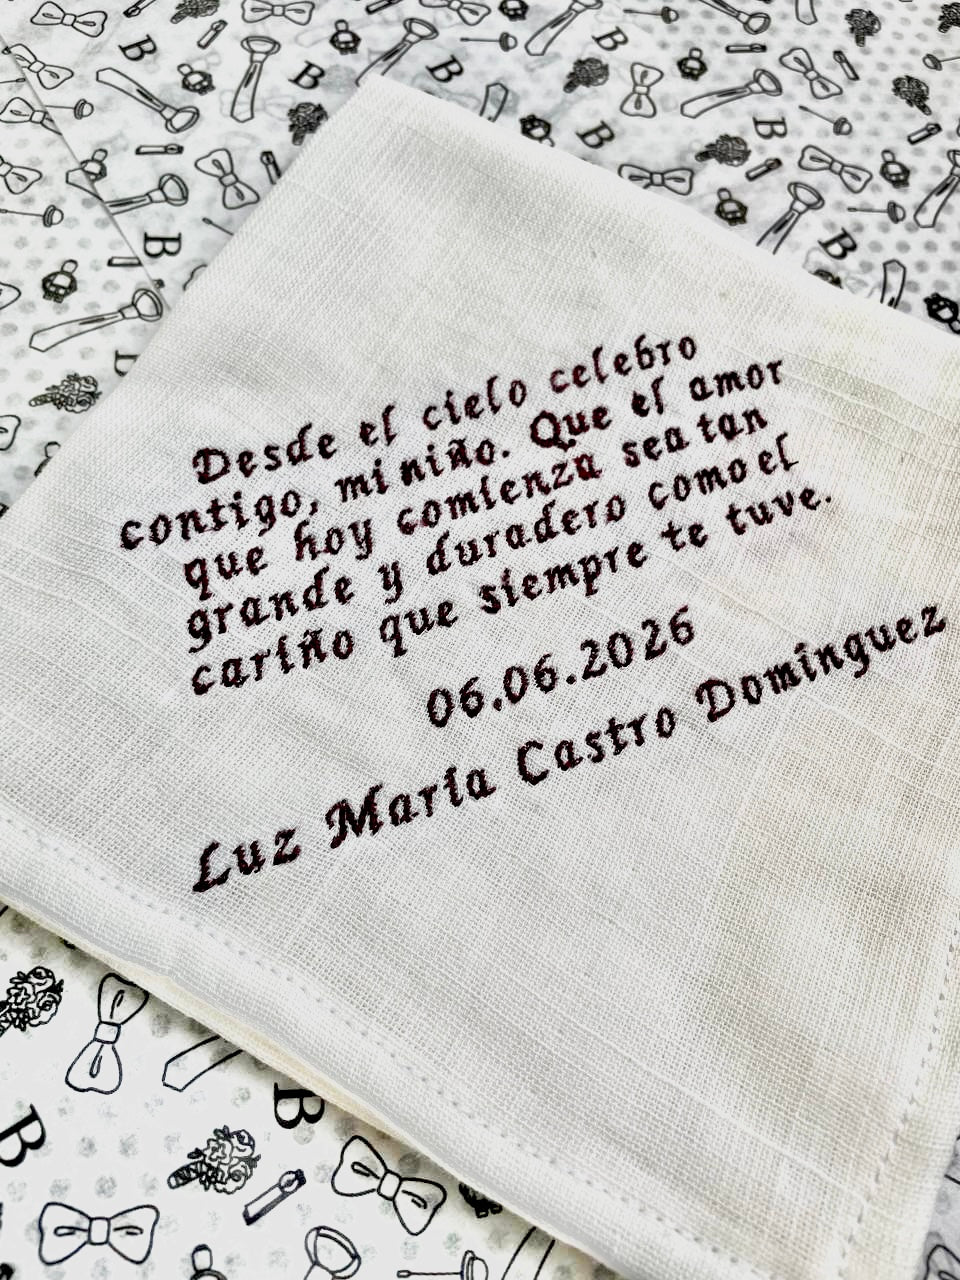 Desde el cielo celebro
contigo, mi niño. Que el amor
que hoy comienza sea tan
grande y duradero como el
cariño que siempre te tuve.
06.06.2026
Luz María Castro Domínguez
B
B
B
B
B
B
B
B
B
B